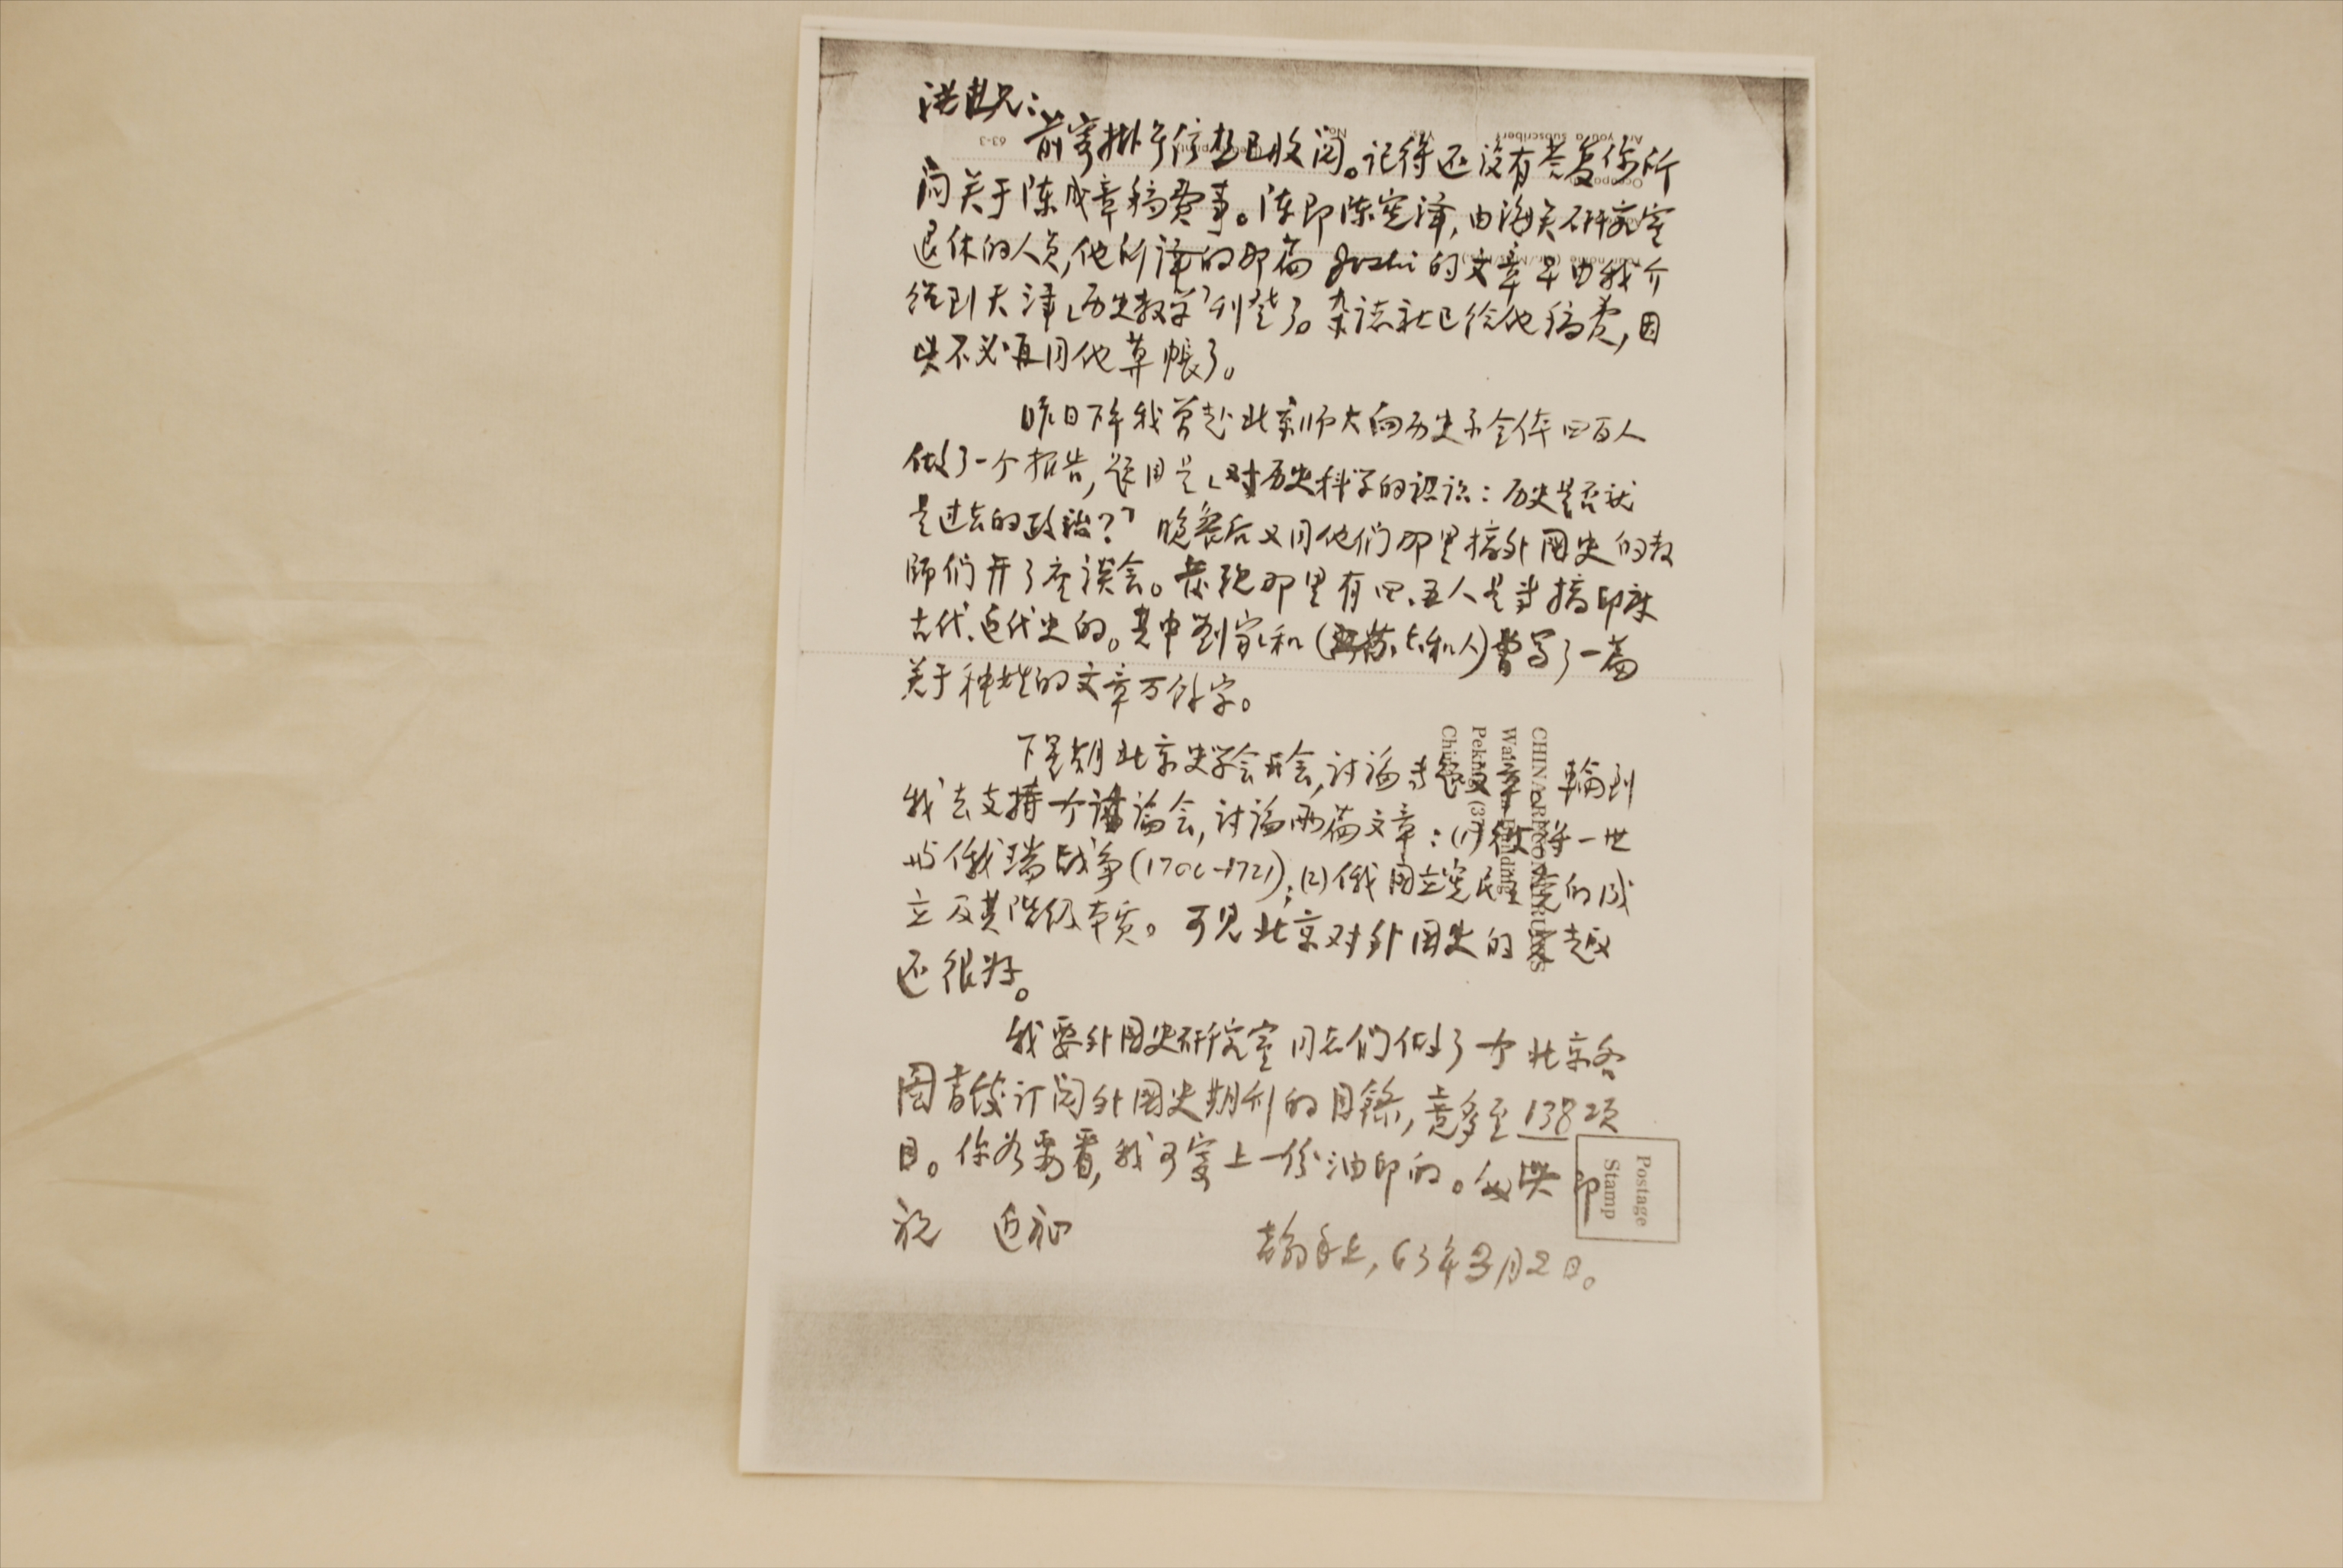 洪进兄:
前寄挂号信想已收阅。记得还没有答复你所
问关于陈成章稿费事。陈即陈定泽,由海关研究室
退休的人员,他所译的那篇 的文章早由我介
绍到天津「历史教学」刊登了。杂志社已给他稿费,因
此不必再同他算帐了。
昨日下午我曾赴北京师大向历史系全体四百人
做了一个报告,题目是「对历史科学的认识:历史是否就
是过去的政治?」晚餐后又同他们那里搞外国史的教
师们开了座谈会。发现那里有四、五人是专搞印度
古代、近代史的。其中刘家和(六和人)曾写了一篇
关于种姓的文章万余字。
下星期北京史学会开会,讨论专题文章,轮到
我去支持一个讨论会,讨论两篇文章:(1)彼得一世
与俄瑞战争(1700-1721);(2)俄国立宪民主党的成
立及其阶级本质。可见北京对外国史的兴趣
还很好。
我要外国史研究室同志们做了一个北京各
图书馆订阅外国史期刊的目录,竟多至138项
目。你若要看,我可寄上一份油印的。匆此 即
祝 近祉
翰手上,63年3月2日。
63-3
Are you a subscriber? Yes: No:
Occupation
CHINA RECONSTRUCTS
Wai Wen Building
Peking (37)
China
Postage
Stamp